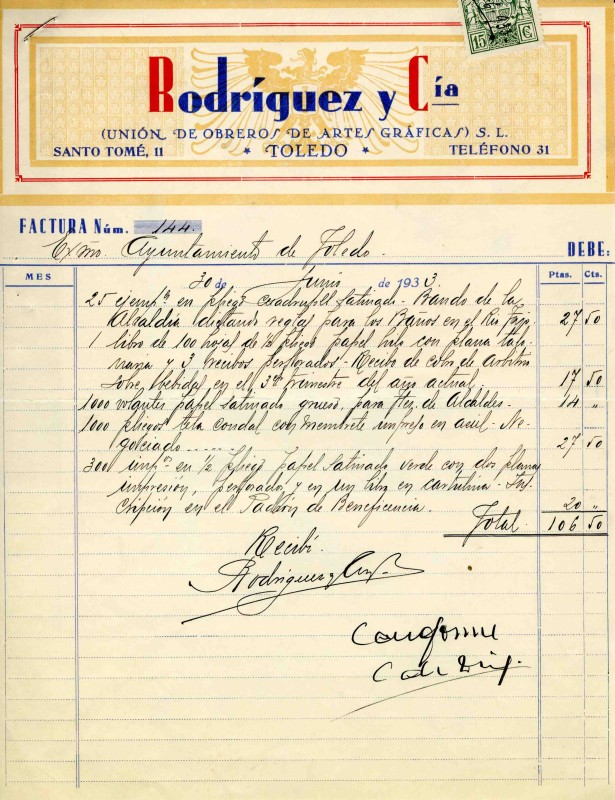 15 C.
Rodríguez y Cía
(UNIÓN DE OBREROS DE ARTES GRÁFICAS) S. L.
SANTO TOMÉ, 11 * TOLEDO * TELÉFONO 31
FACTURA Núm. 144.
Exmo. Ayuntamiento de Toledo. DEBE:
MES Ptas. Cts.
30 de Junio de 1933.
25 ejemps en pliego satinado - Bando de la
Alcaldia dictando reglas para los Baños en el Rio Tajo. 27 50
1 libro de 100 hojas de 1/2 pliego papel hilo con plana
y 3 recibos perforados - Recibo de cobro de arbitrio
sobre bebidas en el 3er trimestre del año actual. 17 50
1000 volantes papel satinado grueso, para de Alcaldes- 14 "
1000 pliegos tela condal con membrete impreso en azul - Ne-
gociado 27 50
300 en 1/2 pliego papel satinado verde con dos planas
impresión, perforados y en un libro en cartulina - Ins-
cripción en el Padrón de Beneficencia. 20 "
Total 106 50
Recibí.
Rodriguez y
Conforme